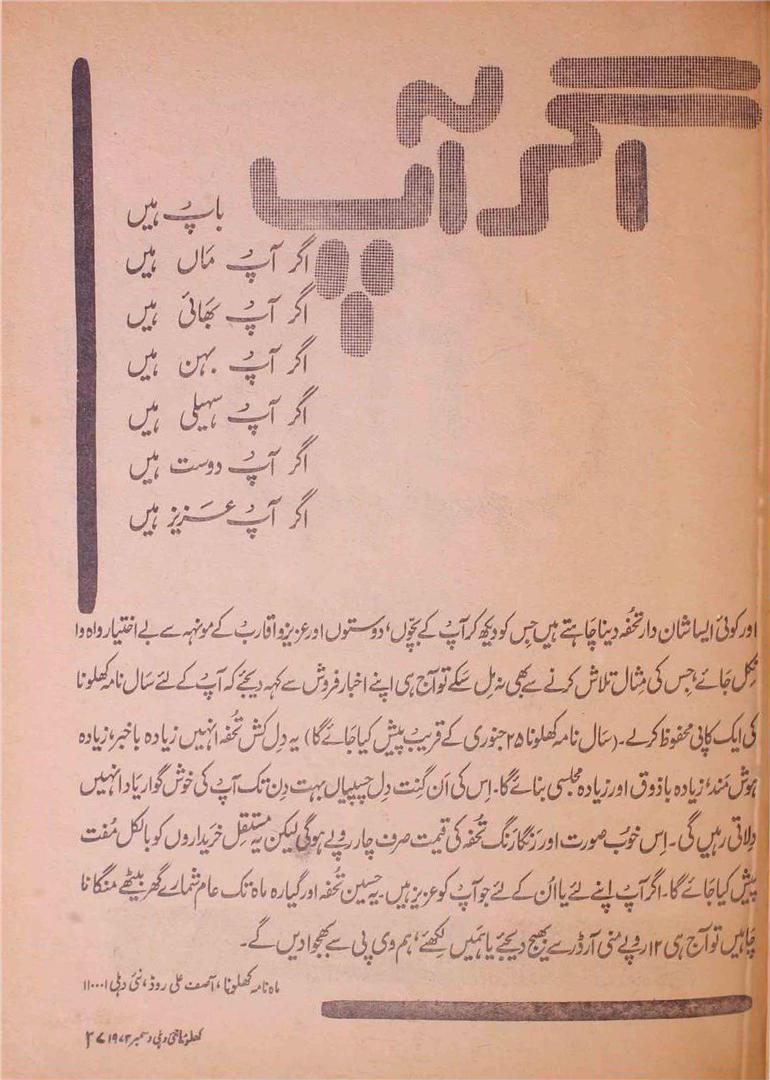 اگر آپ
باپ ہیں
اگر آپ ماں ہیں
اگر آپ بھائی ہیں
اگر آپ بہن ہیں
اگر آپ سہیلی ہیں
اگر آپ دوست ہیں
اگر آپ عزیز ہیں
اور کوئی ایسا شان دار تحفہ دینا چاہتے ہیں جس کو دیکھ کر آپ کے بچّوں، دوستوں اور عزیز و اقارب کے مونہہ سے بے اختیار واہ وا
نکل جائے، جس کی مثال تلاش کرنے سے بھی نہ مل سکے تو آج ہی اپنے اخبار فروش سے کہہ دیجئے کہ آپ کے لئے سال نامہ کھلونا
کی ایک کاپی محفوظ کرلے۔ (سال نامہ کھلونا ۲۵ جنوری کے قریب پیش کیا جائے گا) یہ دل کش تحفہ انہیں زیادہ باخبر، زیادہ
ہوش مند، زیادہ باذوق اور زیادہ مجلسی بنائے گا۔ اِس کی اَن گنت دل چسپیاں بہت دِن تک آپ کی خوش گوار یاد انہیں
دلاتی رہیں گی۔ اِس خوب صورت اور رنگا رنگ تحفہ کی قیمت صرف چار روپے ہوگی لیکن یہ مستقل خریداروں کو بالکل مُفت
پیش کیا جائے گا۔ اگر آپ اپنے لئے یا اُن کے لئے جو آپ کو عزیز ہیں۔ یہ حسین تحفہ اور گیارہ ماہ تک عام شمارے گھر بیٹھے منگانا
چاہیں تو آج ہی ۱۲ روپے منی آرڈر سے بھیج دیجئے یا ہمیں لکھئے، ہم وی پی سے بھجوا دیں گے۔
ماہ نامہ کھلونا، آصف علی روڈ، نئی دہلی ۱۱۰۰۰۱
کھلونا نئی دہلی دسمبر ۱۹۷۳ ۲۷